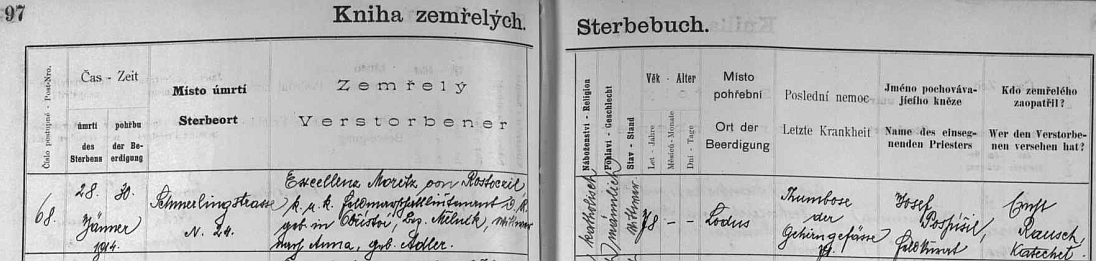 97
Kniha zemřelých.
Sterbebuch.
Číslo postupné - Post-Nro.
Čas - Zeit
úmrtí
des
Sterbens
pohřbu
der Be-
erdigung
Místo úmrtí
Sterbeort
Zemřelý
Verstorbener
Náboženství - Religion
Pohlaví - Geschlecht
Stav - Stand
Věk - Alter
Let - Jahre
Měsíců - Monate
Dní - Tage
Místo
pohřební
Ort der
Beerdigung
Poslední nemoc
Letzte Krankheit
Jméno pochováva-
jícího kněze
Name des einseg-
nenden Priesters
Kdo zemřelého
zaopatřil?
Wer den Verstorbe-
nen versehen hat?
68.
28. 30.
Jänner
1914.
Schmerlingstrasse
N. 24.
Excellenz Moritz von Rostoczil
k. u. k. Feldmarschalleutnant d. R.
geb. in Obřístoí, Bez. Mělnik, Witwer
nach Anna, geb. Adler.
katholisch
männlich
Witwer
78 - -
Lodus
Trumbose
der
Gehirngefässe
Josef
Pospíšil,
Feldkurat
Ernst
Rausch,
Katechet.